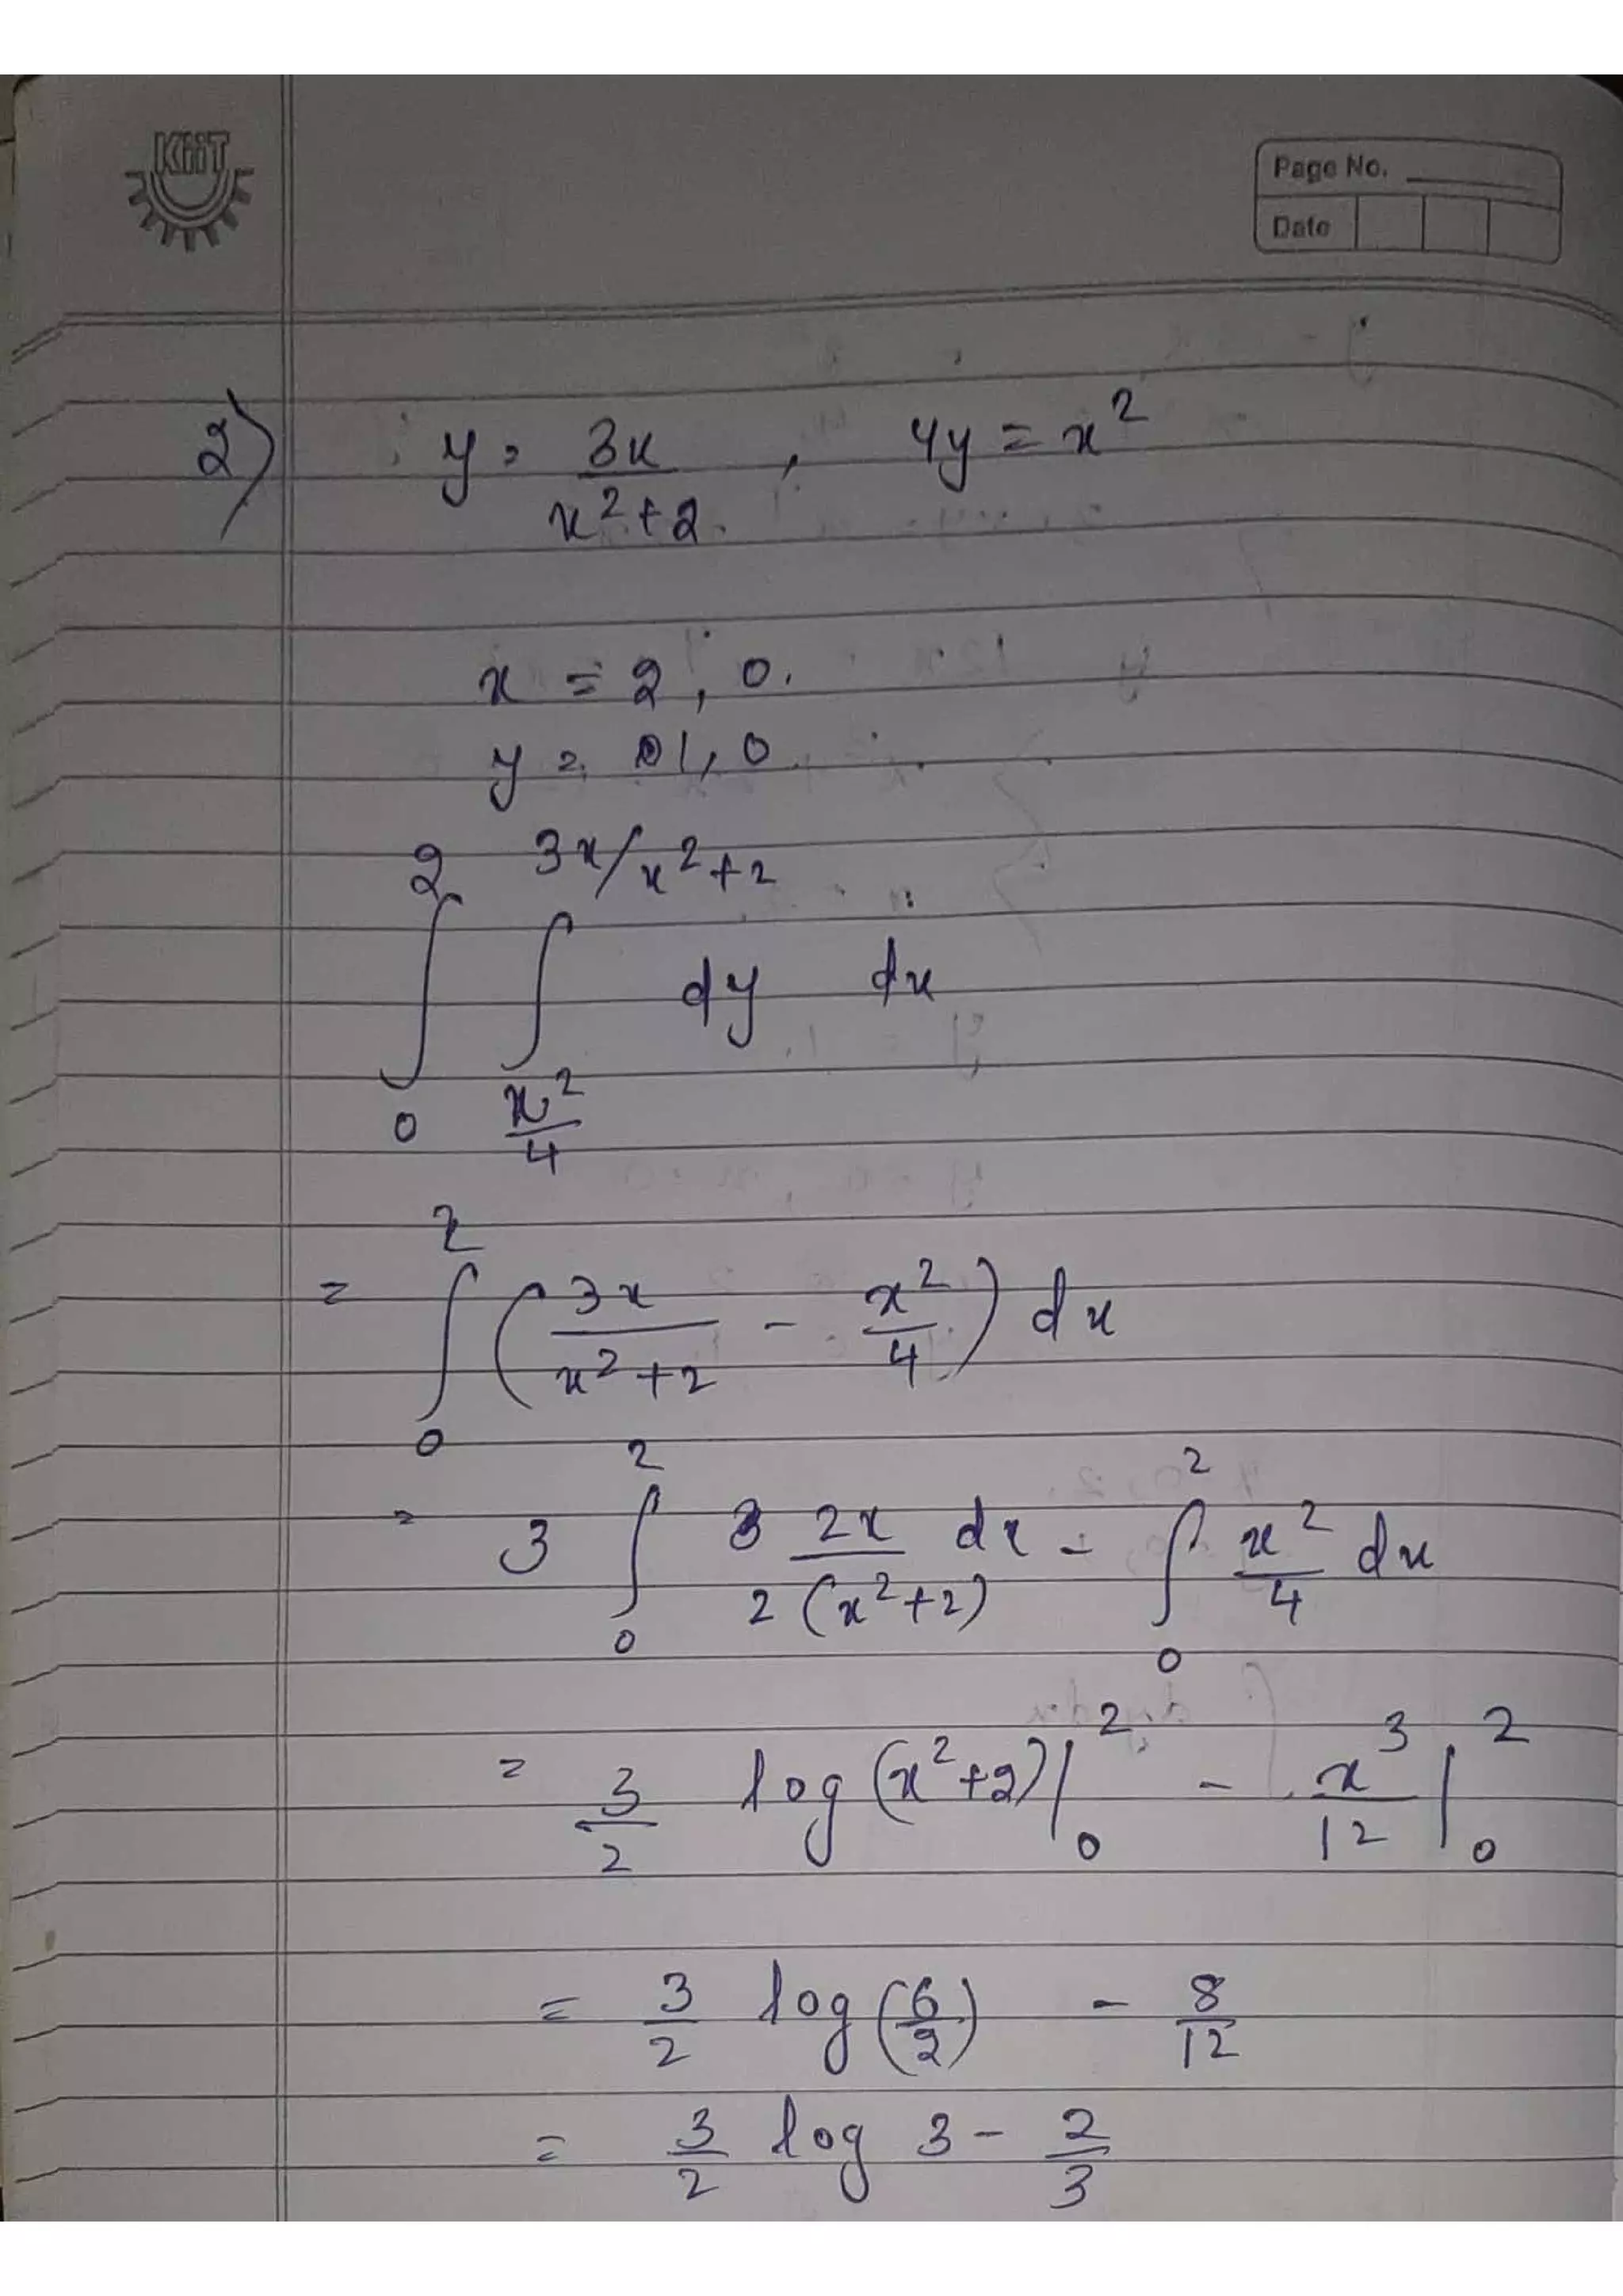 KiiT
Page No.
Date
2) y = 3x / x²+2 , 4y = x²
x = 2, 0.
y = 1, 0
∫₀² ∫_{x²/4}^{3x/x²+2} dy dx
= ∫₀² (3x / x²+2 - x²/4) dx
= 3 ∫₀² 2x / 2(x²+2) dx - ∫₀² x²/4 dx
= 3/2 log(x²+2)|₀² - x³/12|₀²
= 3/2 log(6/2) - 8/12
= 3/2 log 3 - 2/3